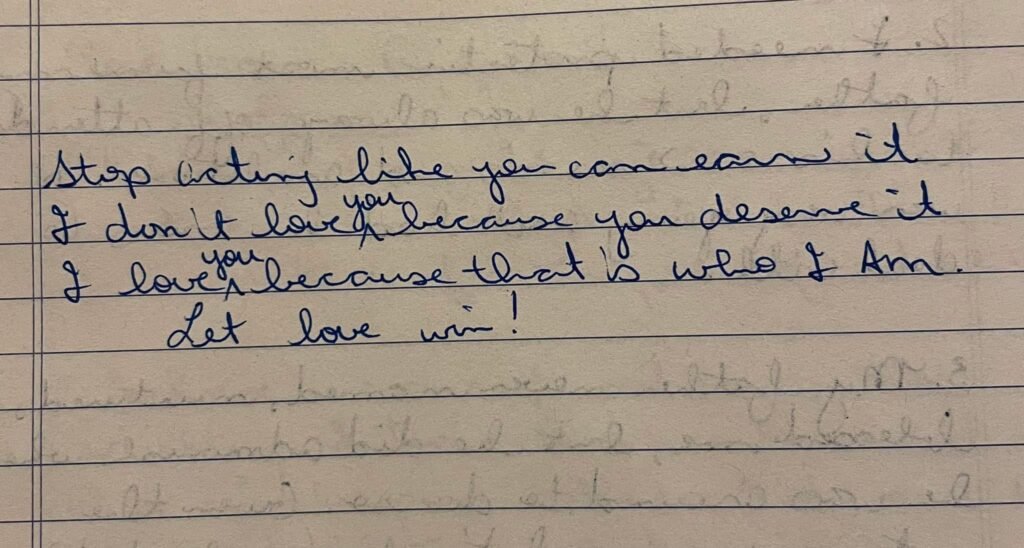 Stop acting like you can earn it
I don't love you because you deserve it
I love you because that is who I Am.
Let love win!